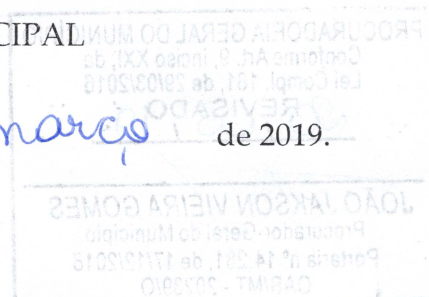 CIPAL
PROCURADORIA GERAL DO MUNICÍPIO
Conforme Art. 9, inciso XXI, da
Lei Compl. 181, de 29/03/2016
REVISADO
março de 2019.
JOÃO JAKSON VIEIRA GOMES
Procurador-Geral do Município
Portaria nº 14.281, de 17/12/2018
OAB/MT - 20239/O